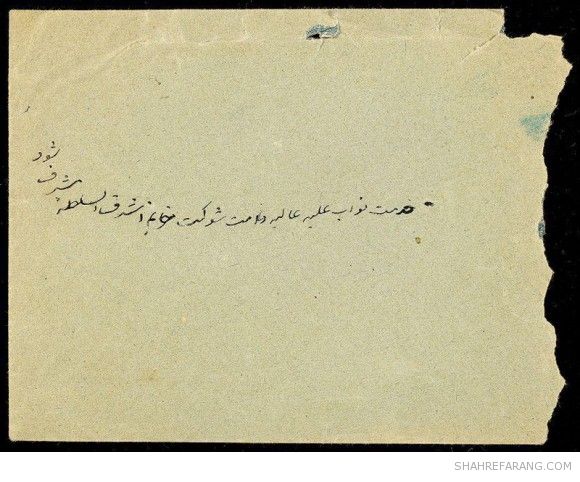 خدمت نواب علیه عالیه دامت شوکت خانم اشرف السلطنه
مشرف
شود
SHAHREFARANG.COM